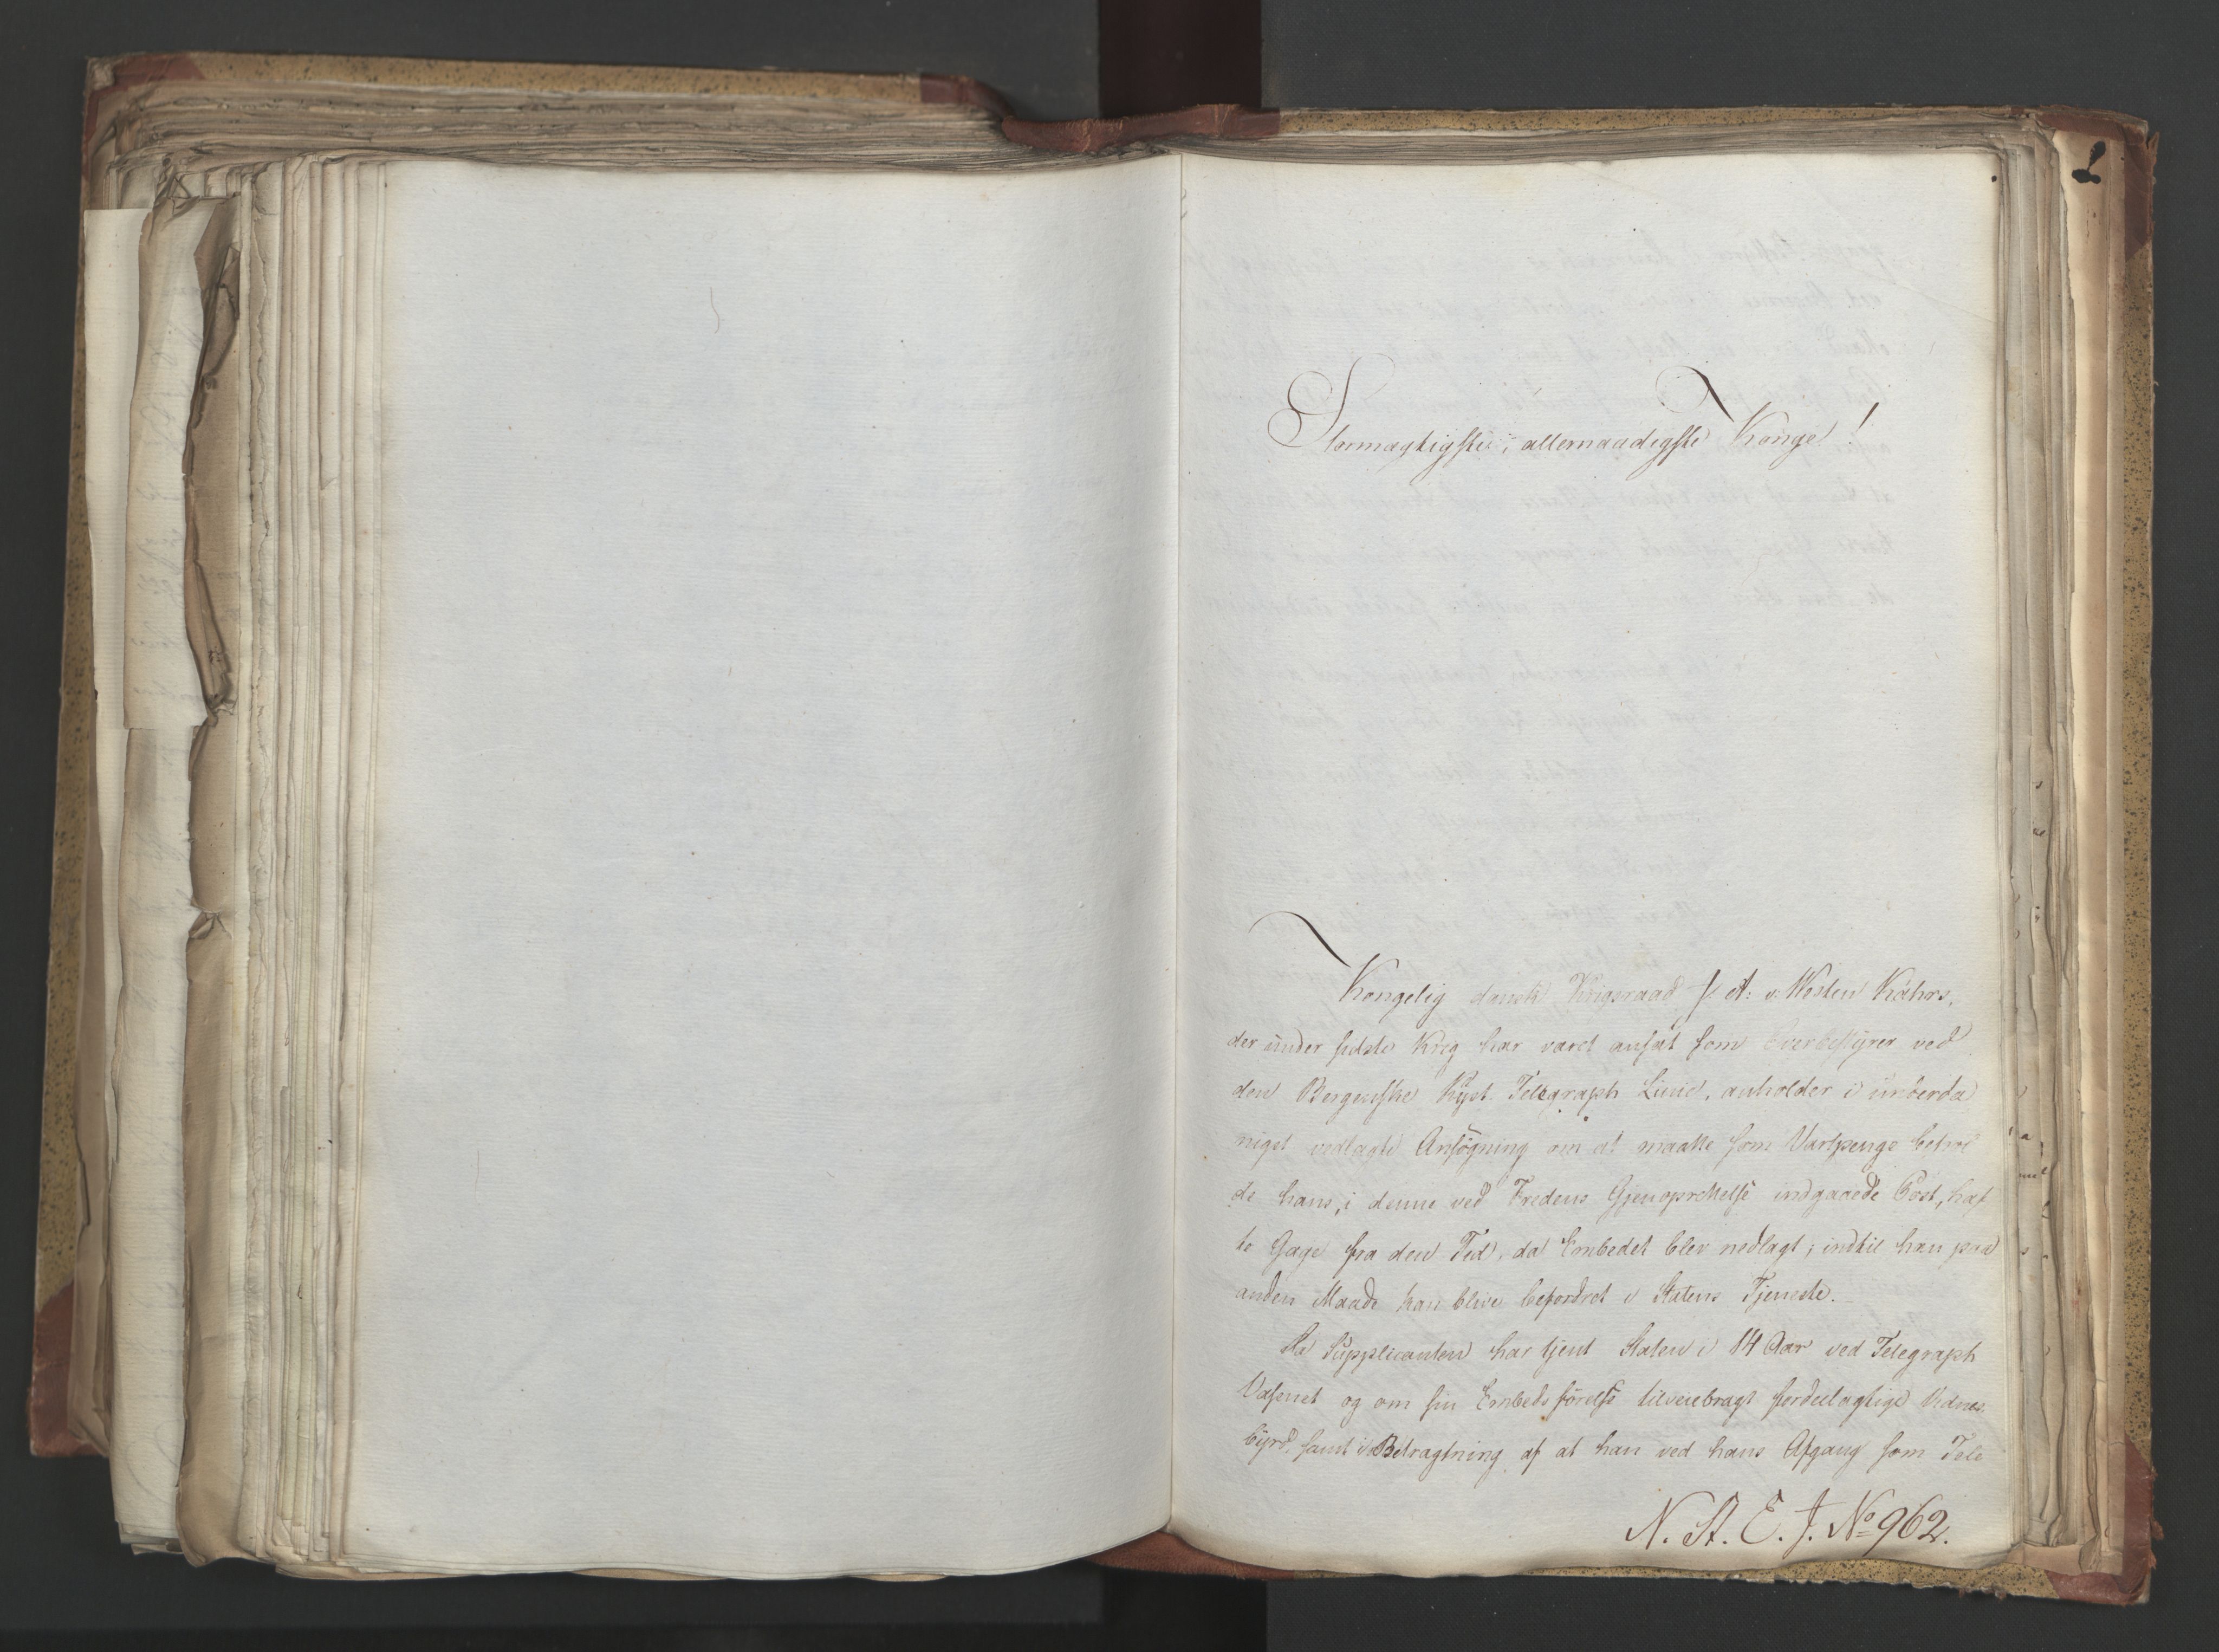 Stormægtigste, allernaadigste Konge!
Kongelig dansk Krigsraad J. A: v: Westen Kahrs,
der under sidste Krig har været ansat som Overbestyrer ved
den Bergenske Kyst Telegraph Linie, anholder i underda
nigst vedlagte Ansøgning om at maatte som Vartpenge behol
de hans, i denne ved Fredens Gjenoprettelse indgaaede Post, haf
te Gage fra den Tid, da Embedet blev nedlagt; indtil han paa
anden Maade kan blive befordret i Statens Tjeneste.
Da Supplicanten har tjent Staten i 14 Aar ved Telegraph
Væsnet og om sin Embedsførelse tilveiebragt fordeelagtige Vidnes
byrd, samt i Betragtning af at han ved hans Afgang som Tele
N. St. E. J. No 962.